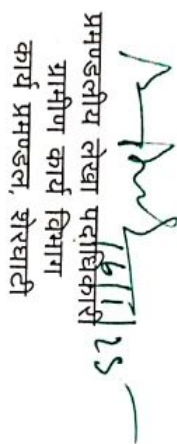 16/11/25
प्रमण्डलीय लेखा पदाधिकारी
ग्रामीण कार्य विभाग
कार्य प्रमण्डल, शेरघाटी